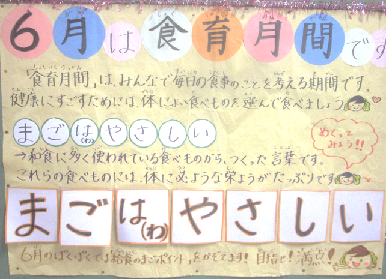 6月は食育月間です
「食育月間」は、みんなで毎日の食事のことを考える期間です。
健康にすごすためには、体によい食べものを選んで食べましょう
まごは(わ)やさしい
めくってみよう!!
→和食に多く使われている食べものから、つくった言葉です。
これらの食べものには、体に必ような栄ようがたっぷりです
まごは(わ)やさしい
6月のぱくぱくでは給食のまごポイントをかぞてます! 目指せ!満点!